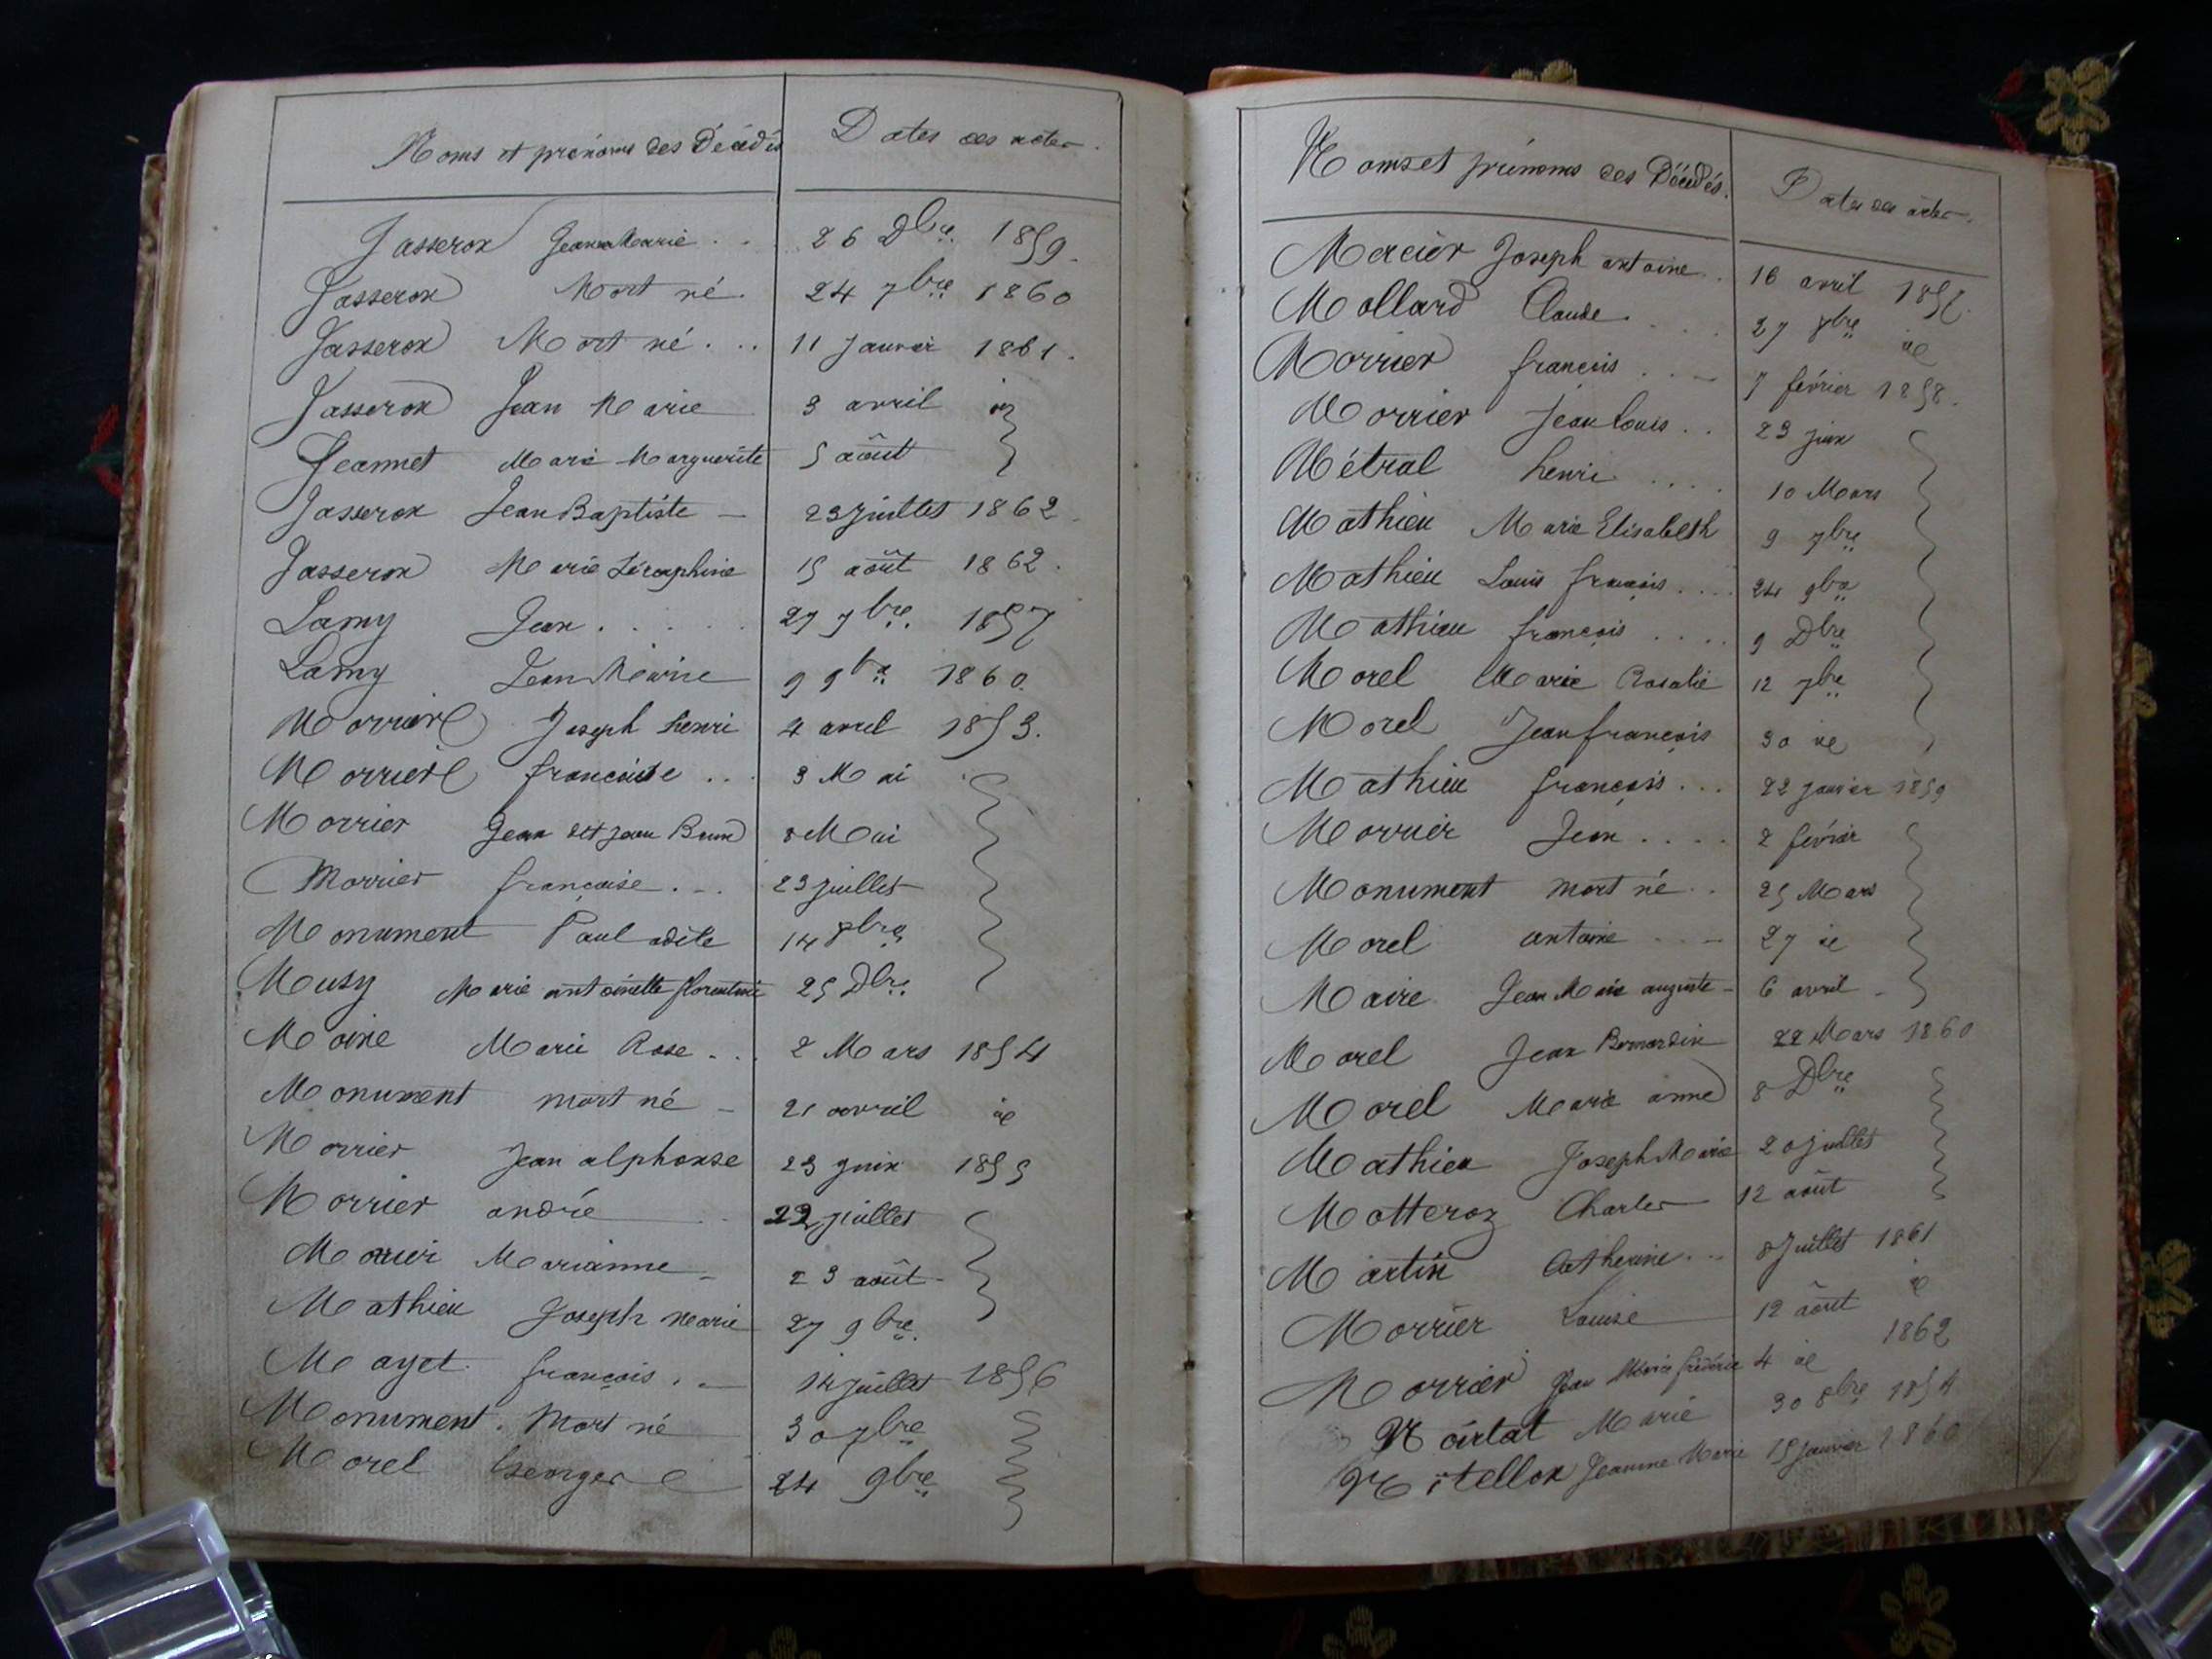 Noms et prénoms des Décédés
Dates des actes.
Jasseron Jeanne Marie . . 26 Dbre. 1859.
Jasseron Mort né. 24 7bre 1860
Jasseron Mort né . .. 11 Janvier 1861.
Jasseron Jean Marie 3 avril id
Jeannet Marie Marguerite 5 août
Jasseron Jean Baptiste — 23 juillet 1862.
Jasseron Marie Séraphine 15 août 1862.
Lamy Jean . . . . . 27 7bre. 1857
Lamy Jean Marie 9 9bre 1860.
Morrier Joseph henri 4 avril 1853.
Morrier francoise ... 3 Mai
Morrier Jean dit jean Brun 8 Mai
Morrier françoise . .. 23 juillet
Monument Paul 14 8bre
Musy Marie antoinette florentine 25 Dbre.
Moine Marie Rose . .. 2 Mars 1854
Monument mort né — 21 avril id
Morrier Jean alphonse 23 juin 1855
Morrier andré 22 juillet
Morrier Marianne — 23 août -
Mathieu Joseph marie 27 9bre.
Mayet. françois . — 14 juillet 1856
Monument . Mort né 30 7bre
Morel George 24 9bre
Noms et prénoms des Décédés.
Dates des actes.
Mercier Joseph antoine . 16 avril 1857.
Mollard Claude . . . . 27 8bre id
Morrier françois . . — 7 février 1858.
Morrier Jean Louis . . 23 juin
Métral henri . . . . 10 Mars
Mathieu Marie Elisabeth 9 7bre
Mathieu Louis françois .... 24 9bre
Mathieu françois .... 9 Dbre
Morel Marie Rosalie 12 7bre
Morel Jean françois 30 id
Mathieu françois ... 22 janvier 1859
Morrier Jean .... 2 février
Monument mort né .. 25 Mars
Morel antoine . . — 27 id
Maire Jean Marie auguste — 6 avril -
Morel Jean Bernardin 22 Mars 1860
Morel Marie anne 8 Dbre
Mathieu Joseph Marie 20 juillet
Motteroz Charles 12 août
Martin Catherine . .. 8 Juillet 1861
Morrier Louise 12 août id
Morrier Jean Marie frédéric 4 id 1862
Noirtat Marie 30 8bre 1854
Nitellon Jeanne Marie 15 janvier 1860